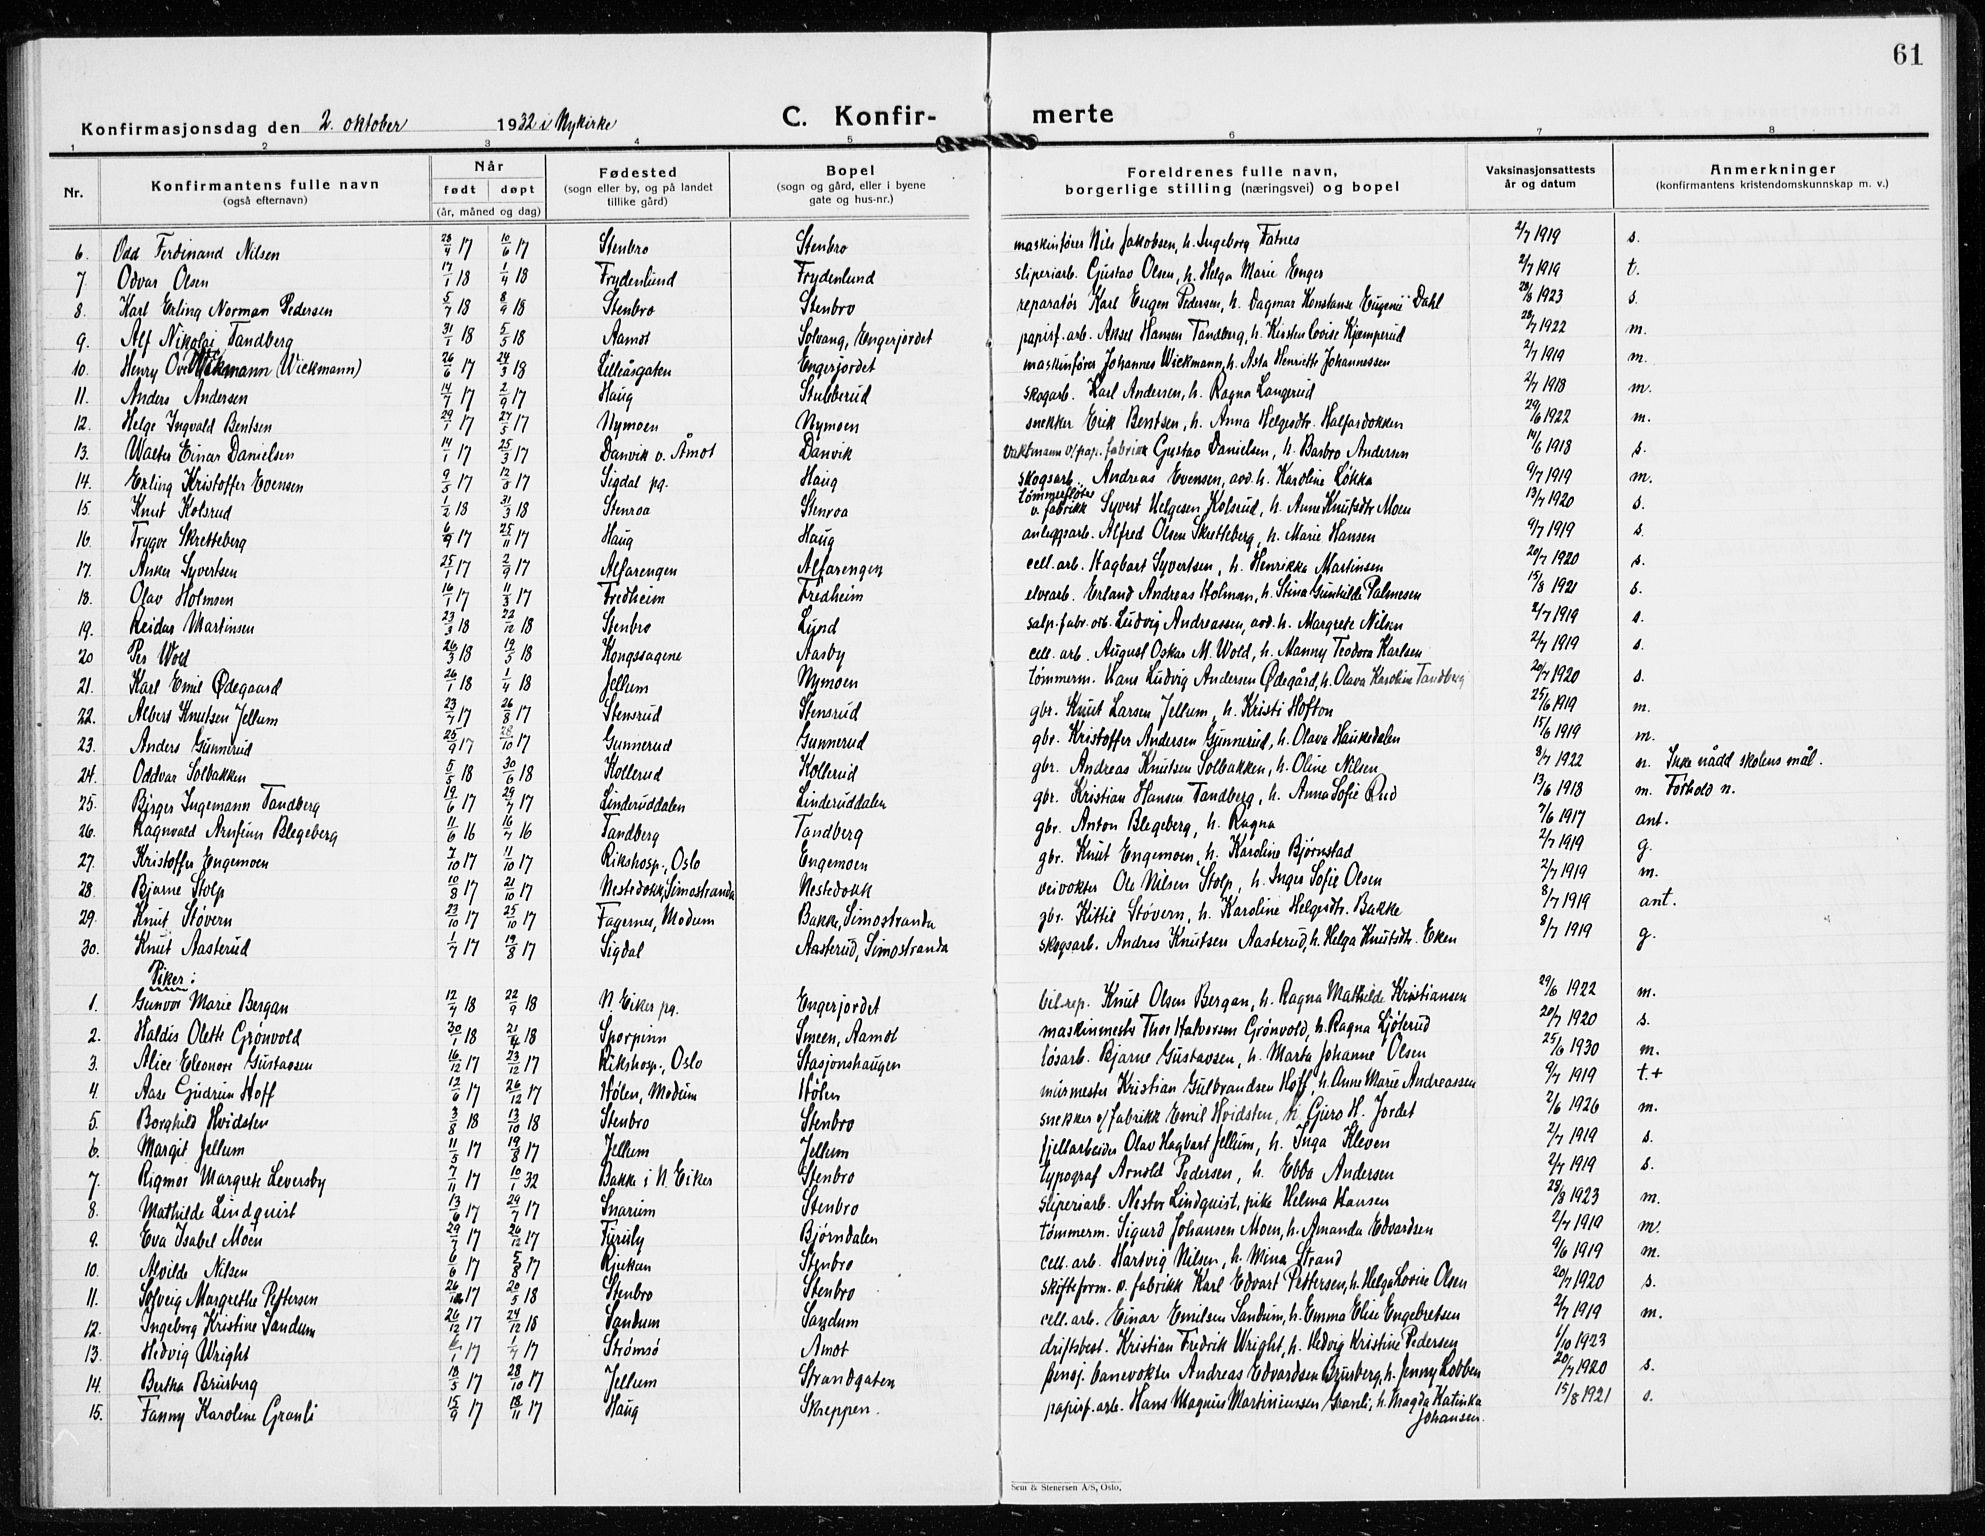 61
Konfirmasjonsdag den 2. oktober 1932 i Nykirke C. Konfir- merte
1 2 3 4 5 6 7 8
Nr. Konfirmantens fulle navn (også efternavn) Når født døpt (år, måned og dag) Fødested (sogn eller by, og på landet tillike gård) Bopel (sogn og gård, eller i byene gate og hus-nr.) Foreldrenes fulle navn, borgerlige stilling (næringsvei) og bopel Vaksinasjonsattests år og datum Anmerkninger (konfirmantens kristendomskunnskap m. v.)
6. Odd Ferdinand Nilsen 28/4 17 10/6 17 Stenbro Stenbro maskinfører Nils Jakobsen, h. Ingeborg Fatnes 2/7 1919 s.
7. Odvar Olsen 17/1 18 1/4 18 Frydenlund Frydenlund sliperiarb. Gustav Olsen, h. Helga Marie Enger 2/7 1919 t.
8. Karl Erling Norman Pedersen 5/7 18 8/9 18 Stenbro Stenbro reparatør Karl Eugen Pedersen, h. Dagmar Konstanse Eugenie Dahl 28/8 1923 s.
9. Alf Nikolai Tandberg 31/1 18 5/5 18 Aamot Solvang, Engerjordet papirf. arb. Aksel Hansen Tandberg, h. Kirsten Lovise Kjemperud 28/7 1922 m.
10. Henry Ove Wickmann (Wickmann) 26/6 17 24/3 18 Lilleåsgaten Engerjordet maskinfører Johannes Wickmann, h. Asta Henriette Johannessen 2/7 1919 m.
11. Anders Andersen 14/7 17 2/9 17 Haug Stubberud skogarb. Karl Andersen, h. Ragna Langerud 2/7 1918 m.
12. Helge Ingvald Bentsen 29/1 17 27/5 17 Nymoen Nymoen snekker Erik Bentsen, h. Anna Helgesdtr. Halfardokken 29/6 1922 m.
13. Walter Einar Danielsen 14/1 17 25/3 17 Danvik v. Åmot Danvik vaktmann v/pap. fabrikk Gustav Danielsen, h. Barbro Andersen 14/6 1918 s.
14. Erling Kristoffer Evensen 9/5 17 12/8 17 Sigdal pg. Haug skogsarb. Andreas Evensen, avd. h. Karoline Løkka 9/7 1919 m.
15. Knut Kolsrud 1/2 18 31/3 18 Stenroa Stenroa tømmerfløter v. fabrikk Syvert Helgesen Kolsrud, h. Anne Knutsdtr Moen 13/7 1920 s.
16. Trygve Skretteberg 6/9 17 25/11 17 Haug Haug anleggsarb. Alfred Olsen Skretteberg, h. Marie Hansen 9/7 1919 s.
17. Anker Syvertsen 25/1 17 2/9 17 Alfarengen Alfarengen cell. arb. Hagbart Syvertsen, h. Henrikka Martinsen 20/7 1920 s.
18. Olav Holmsen 16/1 17 11/3 17 Fredheim Fredheim elvearb. Erland Andreas Holman, h. Stina Gunhilde Palmesen 15/8 1921 s.
19. Reidar Martinsen 23/3 18 22/12 18 Stenbro Lund salp. fabr. arb. Ludvig Andreassen, avd. h. Margrete Nilsen 2/7 1919 s.
20 Per Wold 26/3 18 19/5 18 Kongssagene Aasby cell. arb. August Oskar M. Wold, h. Manny Teodora Karlsen 2/7 1919 s.
21. Karl Emil Ødegaard 26/1 18 1/4 18 Jellum Nymoen tømmerm. Hans Ludvig Andersen Ødegård, h. Olava Karoline Tandberg 20/7 1920 s.
22. Albert Knutsen Jellum 23/7 17 26/8 17 Stensrud Stensrud gbr. Knut Larsen Jellum, h. Kristi Hofton 25/6 1919 m.
23. Anders Gunnerud 25/9 17 28/10 17 Gunnerud Gunnerud gbr. Kristoffer Andersen Gunnerud, h. Olava Haukedalen 15/6 1919 m.
24. Oddvar Solbakken 5/5 18 30/6 18 Kollerud Kollerud gbr. Andreas Knutsen Solbakken, h. Oline Nilsen 8/7 1922 n. Ikke nådd skolens mål.
25. Birger Ingemann Tandberg 19/6 17 29/7 17 Linderuddalen Linderuddalen gbr. Kristian Hansen Tandberg, h. Anna Sofie Rud 13/6 1918 m. Forhold n.
26. Ragnvald Arnfinn Blegeberg 11/6 16 16/7 16 Tandberg Tandberg gbr. Anton Blegeberg, h. Ragna 7/6 1917 ant.
27. Kristoffer Engemoen 7/10 17 11/10 17 Rikshosp., Oslo Engemoen gbr. Knut Engemoen, h. Karoline Bjørnstad 2/7 1919 g.
28. Bjarne Stolp 10/8 17 21/10 17 Nestedokk, Simostranda Nestedokk veivokter Ole Nilsen Stolp, h. Inger Sofie Olsen 2/7 1919 m.
29. Knut Støvern 23/10 17 25/10 17 Fagernes, Modum Bakke, Simostranda gbr. Kittil Støvern, h. Karoline Helgesdtr. Bakke 8/7 1919 ant.
30. Knut Aasterud 1/7 17 19/8 17 Sigdal Aasterud, Simostranda skogsarb. Andres Knutsen Aasterud, h. Helga Knutsdtr. Eken 8/7 1919 g.
Piker:
1. Gunvor Marie Bergan 12/7 18 22/9 18 N. Eiker pg. Engerjordet bilrep. Knut Olsen Bergan, h. Ragna Mathilde Kristiansen 29/6 1922 m.
2. Haldis Olette Grønvold 30/1 18 21/4 18 Sporpinn Smeen, Aamot maskinmester Thor Halvorsen Grønvold, h. Ragna Ljøterud 20/7 1920 s.
3. Alice Eleonore Gustavsen 16/12 17 23/12 17 Rikshosp., Oslo Stasjonshaugen løsarb. Bjarne Gustavsen, h. Marta Johanne Olsen 25/6 1930 m.
4. Aase Gudrun Hoff 12/6 17 26/12 17 Hølen, Modum Hølen murmester Kristian Gulbrandsen Hoff, h. Anne Marie Andreassen 9/7 1919 t.+
5. Borghild Hvidsten 3/8 18 13/10 18 Stenbro Stenbro snekker v/ fabrikk Emil Hvidsten, h. Guro H. Jordet 2/6 1926 m.
6. Margit Jellum 11/5 17 19/8 17 Jellum Jellum fjellarbeider Olav Hagbart Jellum, h. Inga Kleven 2/7 1919 s.
7. Rigmor Margrete Leversby 7/11 17 10/1 32 Bakke i N. Eiker Stenbro typograf Arnold Pedersen, h. Ebba Andersen 2/7 1919 s.
8. Mathilde Lindquist 13/6 17 29/7 17 Snarum Stenbro sliperiarb. Nestor Lindquist, pike Helma Hansen 28/8 1923 m.
9. Eva Isabel Moen 29/7 17 26/12 17 Furuly Bjørndalen tømmerm. Sigurd Johansen Moen, h. Amanda Edvardsen 2/7 1919 m.
10. Alvilde Nilsen 6/6 17 5/8 17 Rjukan Stenbro cell. arb. Hartvig Nilsen, h. Mina Strand 9/6 1919 m.
11. Solveig Margrethe Pettersen 26/12 17 20/5 18 Stenbro Stenbro skifteform. v. fabrikk Karl Edvart Pettersen, h. Helga Lovise Olsen 20/7 1920 s.
12. Ingeborg Kristine Sandum 26/12 17 24/12 18 Sandum Sandum cell. arb. Einar Emilsen Sandum, h. Emma Elise Engebretsen 2/7 1919 m.
13. Hedvig Wright 17 17 Strømsø Amot driftsbest. Kristian Fredrik Wright, h. Hedvig Kristine Pedersen 6/10 1923
14. Bertha Brurberg 18/5 17 28/10 17 Jellum Strandgaten pensj. banevokter Andreas Edvardsen Brurberg, h. Jenny Lobben 20/7 1920 s.
15. Fanny Karoline Granli 15/9 17 18/11 17 Haug Skreppen. papirf. arb. Hans Magnus Martiniussen Granli, h. Magda Katinka Johansen. 15/8 1921 s.
Sem & Stenersen A/S, Oslo.